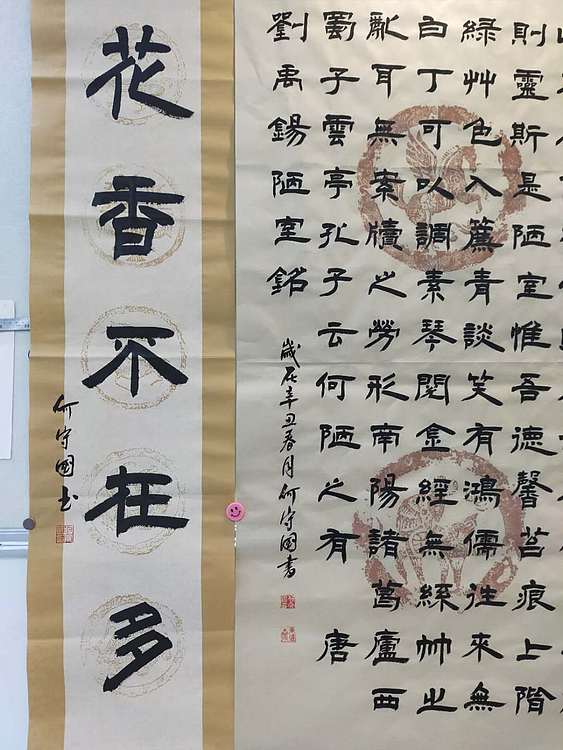 則靈斯是陋室惟吾德馨苔痕上階
綠艸色入簾青談笑有鴻儒往來無
白丁可以調素琴閱金經無絲竹之
亂耳無案牘之勞形南陽諸葛廬西
蜀子雲亭孔子云何陋之有 唐
劉禹錫陋室銘
歲在辛丑春月何守國書
花香不在多
何守國书